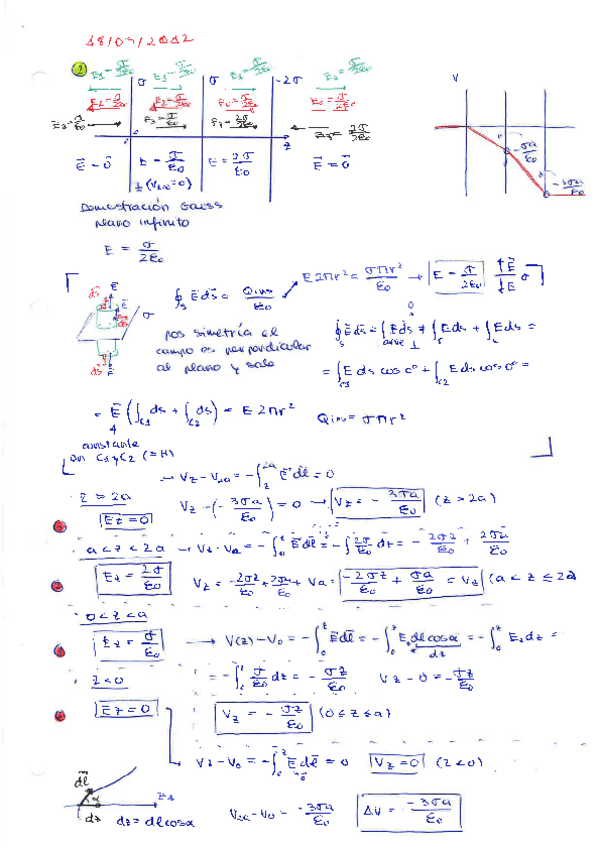 18/09/2012
②
E₁ = σ/2ε₀ σ E₁ = σ/2ε₀ σ E₁ = σ/2ε₀ -2σ E₁ = σ/2ε₀
E₂ = σ/2ε₀ E₂ = σ/2ε₀ E₂ = σ/2ε₀ E₂ = σ/2ε₀
E₃ = σ/ε₀ E₃ = σ/ε₀ E₃ = 2σ/2ε₀ E₃ = 2σ/2ε₀
z
E⃗ = 0⃗ E = σ/ε₀ E = 2σ/ε₀ E⃗ = 0⃗
V
-σa/ε₀
-3σa/ε₀
Demostración Gauss
plano infinito
E = σ/2ε₀
∮ₛ E⃗ds⃗ = Qint/ε₀
E2πr² = σπr²/ε₀ → E = σ/2ε₀ ↑E⃗ ↓E⃗ σ
ds⃗ E⃗ σ
por simetría el
campo es perpendicular
al plano y sale
= ∫c1 E ds cos 0° + ∫c2 E ds cos 0° =
= E⃗ (∫c1 ds + ∫c2 ds) = E 2πr² Qint = σπr²
constante
en C₁ y C₂ (= H)
→ Vz - V2a = -∫ E⃗dl⃗ = 0
z > 2a
Ez = 0
Vz - (-3σa/ε₀) = 0 → Vz = -3σa/ε₀ (z > 2a)
a < z < 2a → Vz - Va = -∫ E⃗dl⃗ = -∫ 2σ/ε₀ dz = -2σz/ε₀ + 2σa/ε₀
Ez = 2σ/ε₀
Vz = -2σz/ε₀ + 2σa/ε₀ + Va = -2σz/ε₀ + σa/ε₀ = Vz (a < z ≤ 2a)
0 < z < a
Ez = σ/ε₀ → V(z) - V₀ = -∫₀ᶻ E⃗dl⃗ = -∫₀ᶻ E dl cosα = -∫₀ᶻ Ez dz =
dz
= -∫₀ᶻ σ/ε₀ dz = -σz/ε₀ Vz - 0 = -σz/ε₀
z < 0
Ez = 0
Vz = -σz/ε₀ (0 ≤ z ≤ a)
Vz - V₀ = -∫₀ᶻ E⃗dl⃗ = 0 Vz = 0 (z < 0)
dl⃗
α
dz dz = dl cosα
V2a - V₀ = -3σa/ε₀ ΔV = -3σa/ε₀